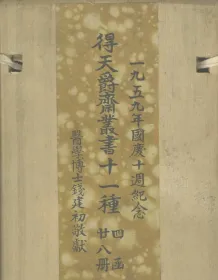 一九五九年國慶十週紀念
得天爵齋叢書十一種
四函
廿八册
醫學博士錢建初敬獻